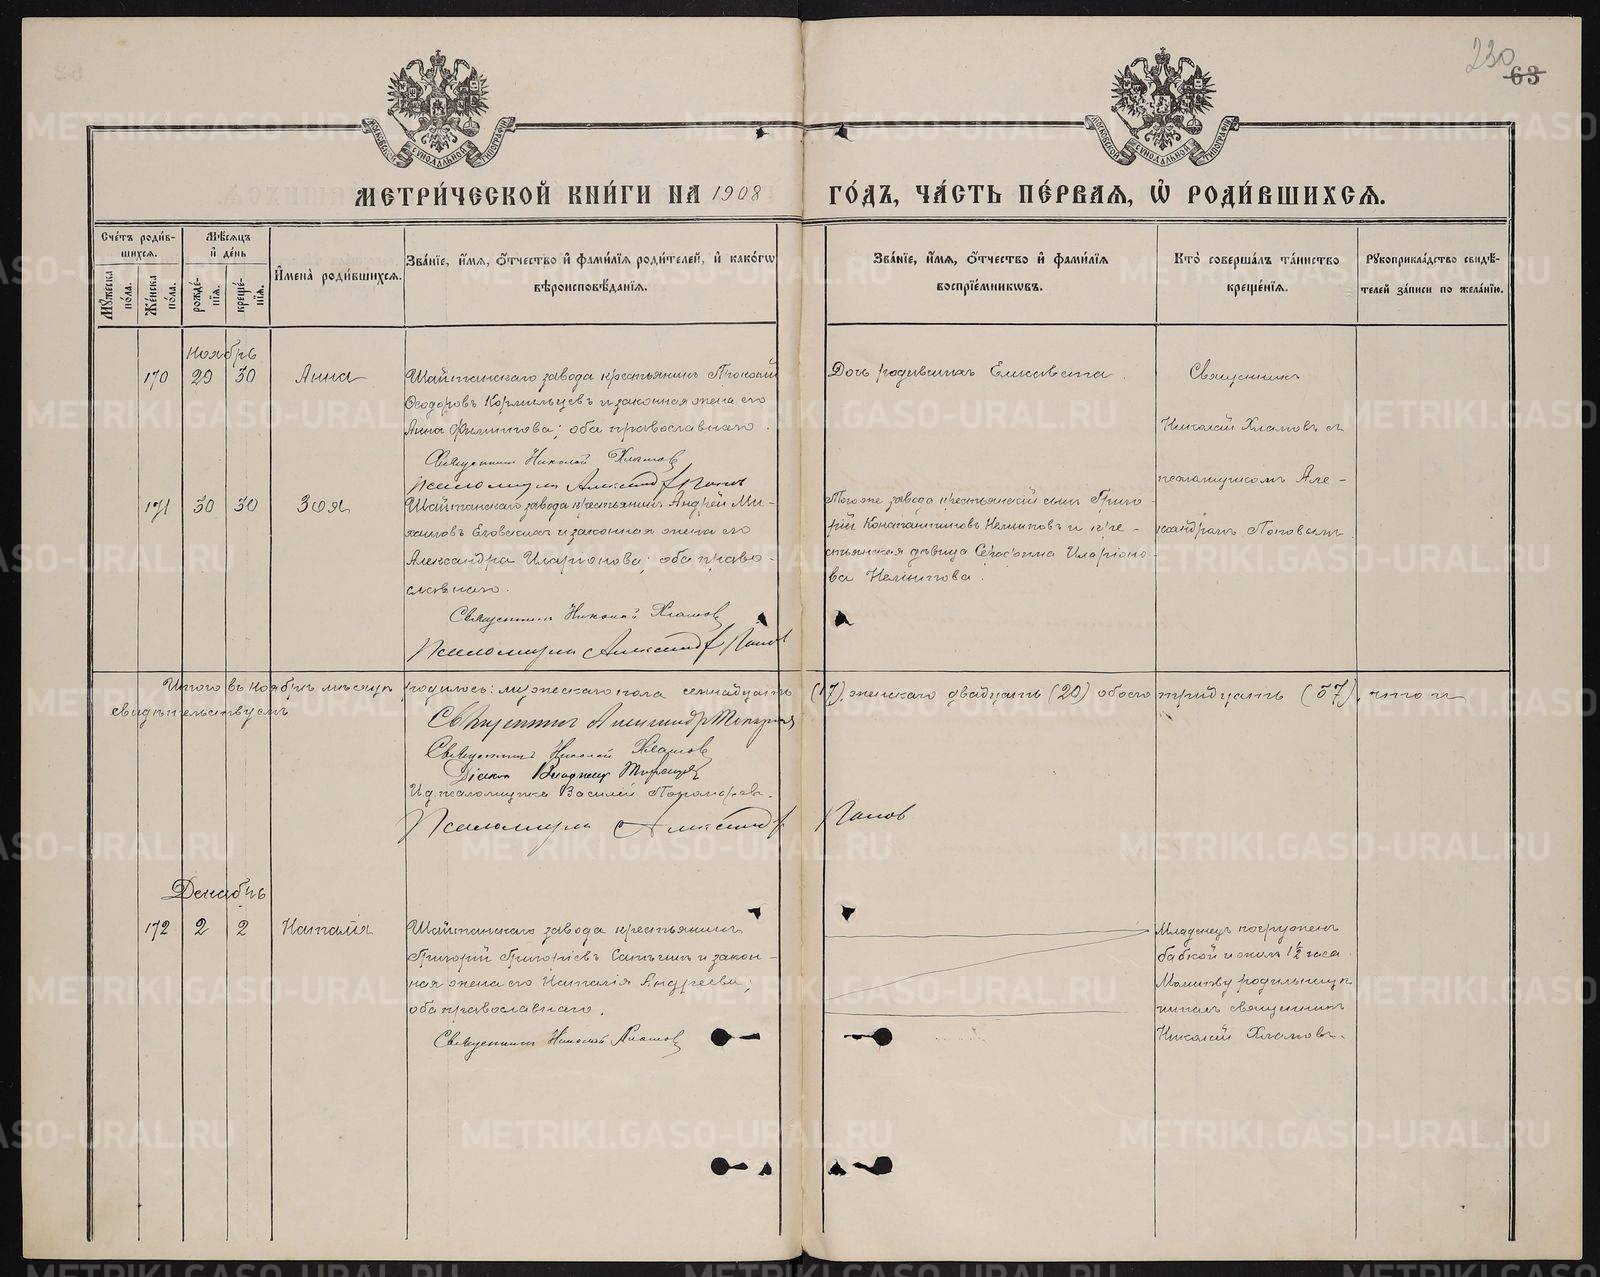 230
63
МОСКОВСКОЙ СУНОДАЛЬНОЙ ТИПОГРАФІИ
МОСКОВСКОЙ СУНОДАЛЬНОЙ ТИПОГРАФІИ
МЕТРИ́ЧЕСКОЙ КНИ́ГИ НА 1908 ГО́ДЪ, ЧА́СТЬ ПЕ́РВАЯ, Ѿ РОДИ́ВШИХСѦ.
Сче́тъ роди́в-
шихся.
Му́жеска по́ла.
Же́нска по́ла.
Мѣ́сяцъ
и҆ де́нь
рожде́-
нїя.
креще́-
нїя.
И҆мена̀ роди́вшихся.
Зва́нїе, и҆́мя, ѻ҆́тчество и҆ фамилїя роди́телей, и҆ како́гѡ
вѣроисповѣ́данїя.
Зва́нїе, и҆́мя, ѻ҆́тчество и҆ фами́лїя
воспрїе́мникѡвъ.
Кто̀ соверша́лъ та́инство
креще́нїя.
Рꙋкоприкла́дство свидѣ́-
телей за́писи по жела́нїю.
Ноябрь
170 29 30 Анна
Шайтанскаго завода крестьянинъ Прокопій
Ѳеодоровъ Кормильцевъ и законная жена его
Анна Филиппова; оба православнаго.
Священникъ Николай Хламов
Псаломщик Александр Попов
Дочь родившихъ Елисавета.
Священникъ
Николай Хламовъ съ
псаломщикомъ Але-
ксандромъ Поповымъ
171 30 30 Зоя
Шайтанскаго завода крестьянинъ Андрей Ми-
хаиловъ и законная жена его
Александра Иларионова; оба право-
славнаго.
Священникъ Николай Хламов
Псаломщик Александр Попов
Того же завода крестьянскій сынъ Григо-
рій Константиновъ и кре-
стьянская дѣвица Иларіоно-
ва
Итого въ ноябрѣ мѣсяцѣ родилось: мужескаго пола семнадцать (17), женскаго двадцать (20) обоего тридцать (37), что и
свидѣтельствуемъ
Священник Александр
Священникъ Николай Хламов
Діакон
И.д. псаломщика Василий
Псаломщик Александр Попов
Декабрь
172 2 2 Наталія
Шайтанскаго завода крестьянинъ
Григорій Григорьевъ и закон-
ная жена его Наталія Андреева;
оба православнаго.
Священникъ Николай Хламов
Младенецъ погруженъ
бабкой и жилъ 1½ часа
Молитву родильницѣ
читалъ священникъ
Николай Хламовъ.
METRIKI.GASO-URAL.RU